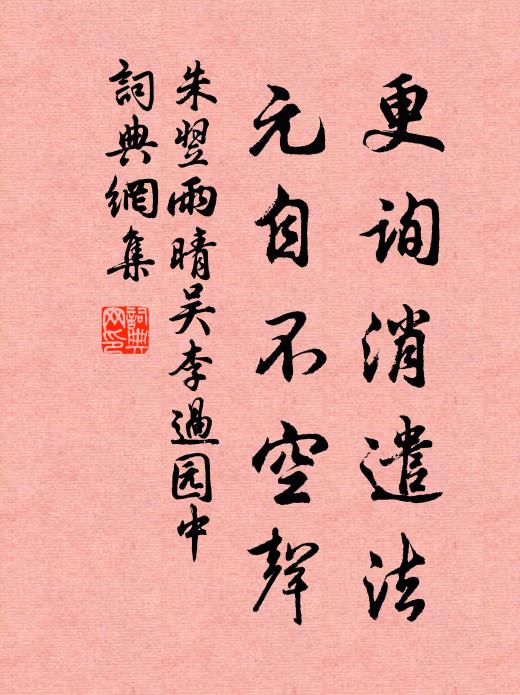 更詢消遣法
元自不空聲
朱翌雨晴吴李過园中
詞典網集
詞典
网印